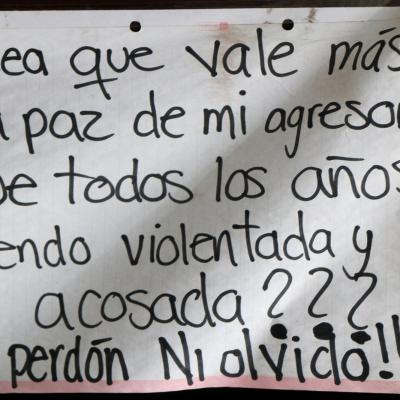 ea que vale más
paz de mi agresor
e todos los años
endo violentada y
acosada ???
perdón Ni olvido!!